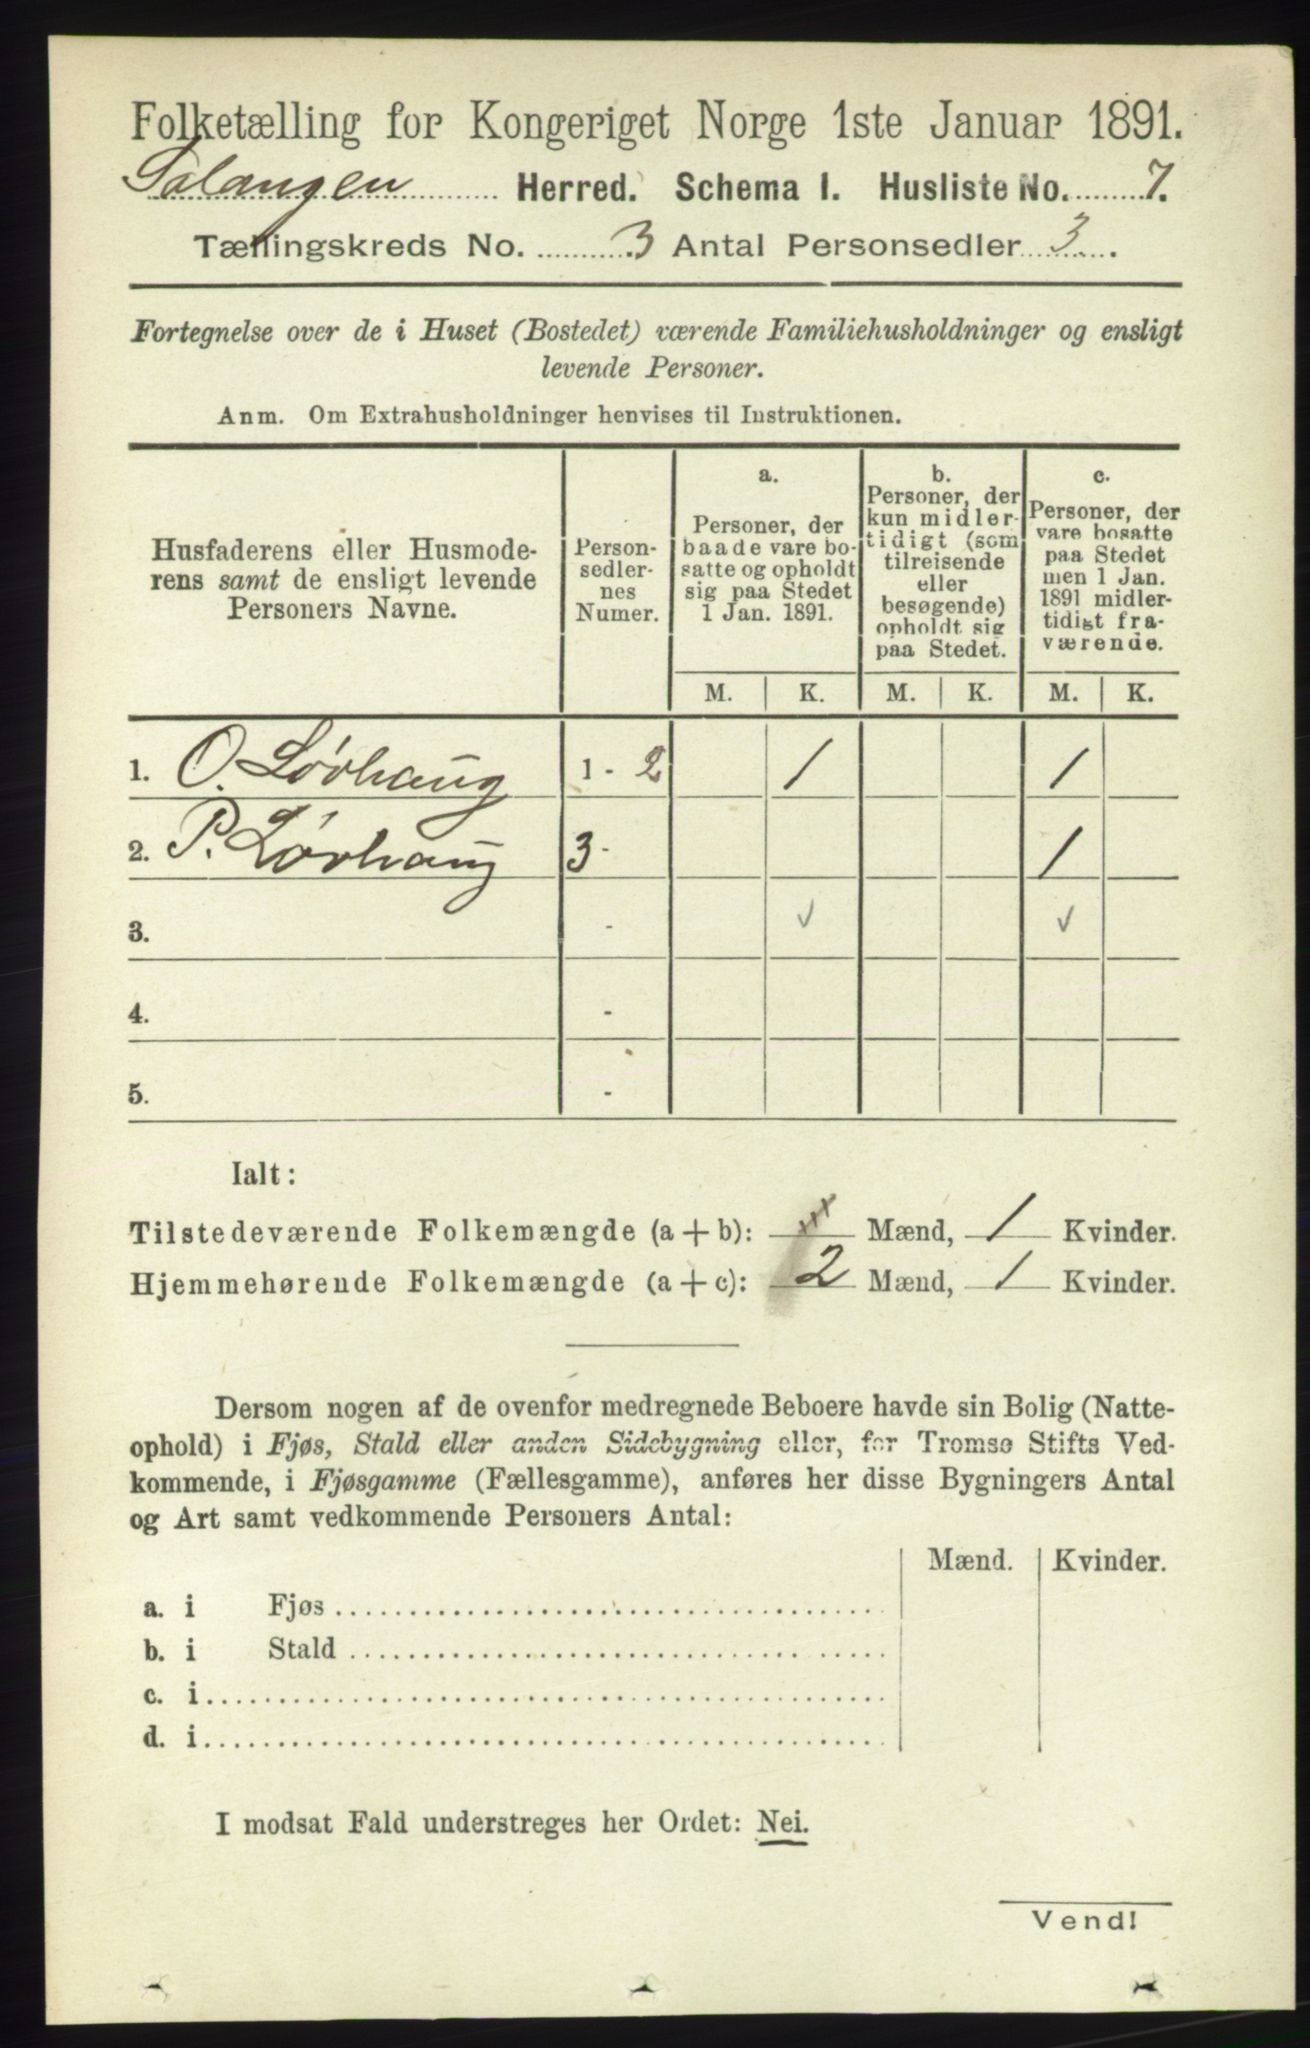 Folketælling for Kongeriget Norge 1ste Januar 1891.
Salangen Herred. Schema I. Husliste No. 7.
Tællingskreds No. 3 Antal Personsedler 3.
Fortegnelse over de i Huset (Bostedet) værende Familiehusholdninger og ensligt
levende Personer.
Anm. Om Extrahusholdninger henvises til Instruktionen.
Husfaderens eller Husmode-
rens samt de ensligt levende
Personers Navne.
Person-
sedler-
nes
Numer.
a.
Personer, der
baade vare bo-
satte og opholdt
sig paa Stedet
1 Jan. 1891.
b.
Personer, der
kun midler-
tidigt (som
tilreisende
eller
besøgende)
opholdt sig
paa Stedet.
c.
Personer, der
vare bosatte
paa Stedet
men 1 Jan.
1891 midler-
tidigt fra-
værende.
M. K. M. K. M. K.
1. O. Lövhaug 1 - 2 1 1
2. P. Lövhaug 3 - 1
3. - ✓ ✓
4. -
5. -
Ialt:
Tilstedeværende Folkemængde (a + b): xxx Mænd, 1 Kvinder.
Hjemmehørende Folkemængde (a + c): 2 Mænd, 1 Kvinder.
Dersom nogen af de ovenfor medregnede Beboere havde sin Bolig (Natte-
ophold) i Fjøs, Stald eller anden Sidebygning eller, for Tromsø Stifts Ved-
kommende, i Fjøsgamme (Fællesgamme), anføres her disse Bygningers Antal
og Art samt vedkommende Personers Antal:
Mænd. Kvinder.
a. i Fjøs
b. i Stald
c. i
d. i
I modsat Fald understreges her Ordet: Nei.
Vend!